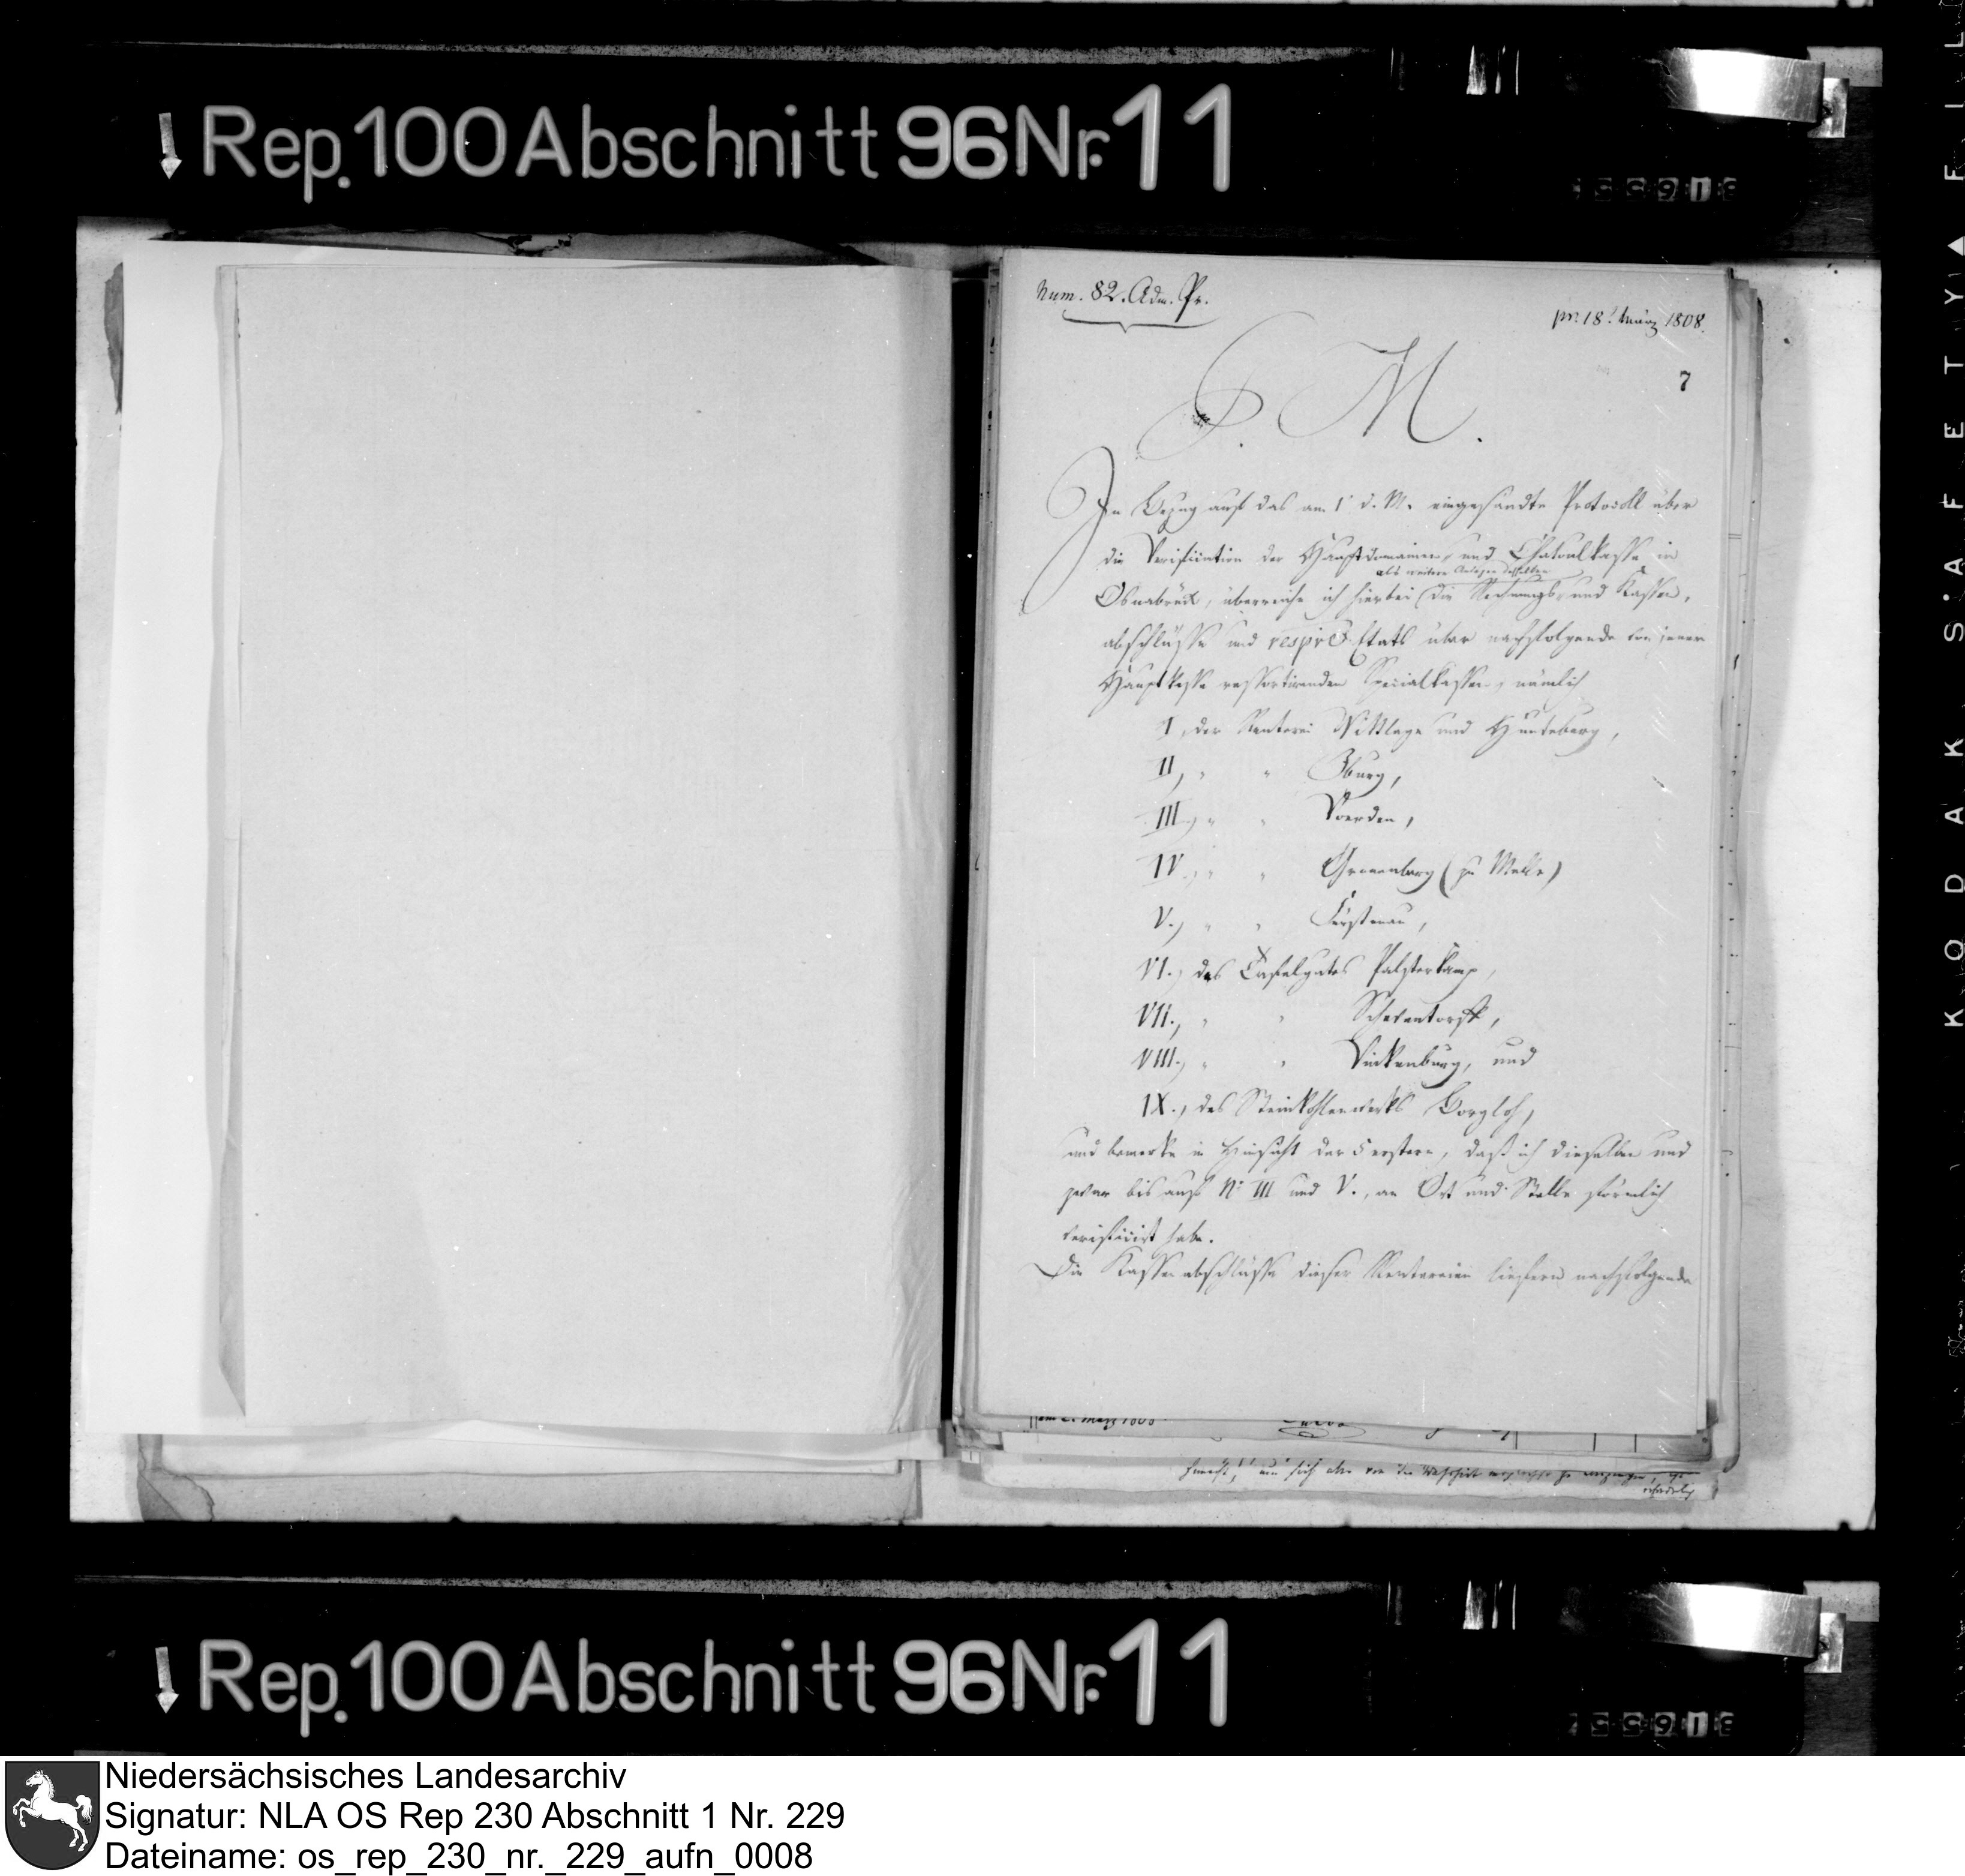 Rep. 100 Abschnitt 96 Nr. 11
Num. 82. Adm. Pr.
pr. 18t. März 1808.
7
P. M.
In Bezug auf das am 1t d. M. eingesandte Protocoll über
die Verification der Hauptdomainen und Chatoulkasse in
als weitere Anlagen desselben
Osnabrück, überreiche ich hierbei die Rechnungs- und Kassen-
abschlüsse und respve Etats über nachfolgende von jener
Hauptkasse ressortirenden Specialkassen, nämlich
I, der Renterei Wittlage und Hunteburg,
II, " " Iburg,
III., " " Voerden,
IV., " " Groenenberg (zu Melle)
V., " " Fürstenau,
VI., des Tafelgutes Palsterkamp,
VII., " " Scheventorff,
VIII., " " Vinkenburg, und
IX., des Steinkohlenwerks Borgloh,
und bemerke in Hinsicht der 5 erstern, daß ich dieselben und
zwar bis auf No III und V., an Ort und Stelle förmlich
verificirt habe.
Die Kassenabschlüsse dieser Rentereien liefern nachfolgende
KODAK SAFETY FIL
Rep. 100 Abschnitt 96 Nr. 11
Niedersächsisches Landesarchiv
Signatur: NLA OS Rep 230 Abschnitt 1 Nr. 229
Dateiname: os_rep_230_nr._229_aufn_0008